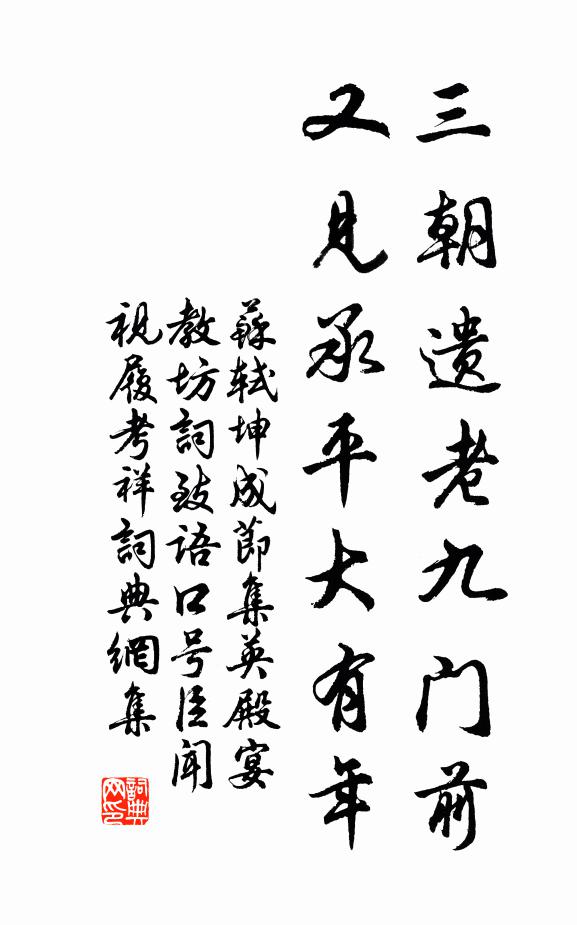 三朝遗老九门前
又见承平大有年
蘇軾坤成節集英殿宴
教坊詞致語口号臣闻
視履考祥詞典網集
詞典网印